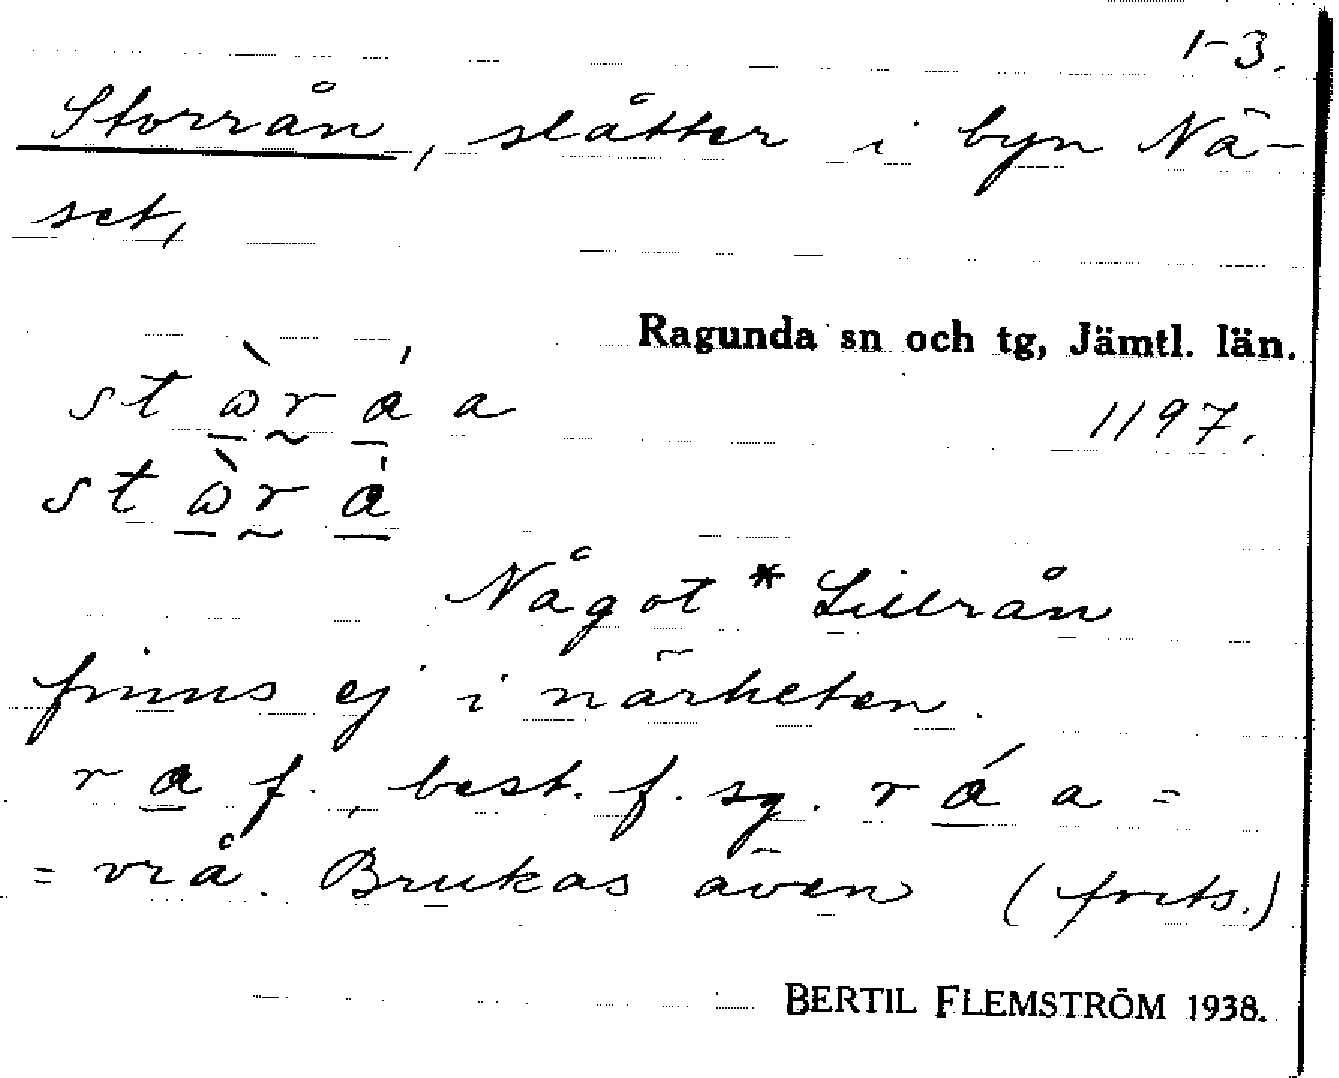 1-3.
Storrån, slåtter i byn Nä-
set,
Ragunda sn och tg, Jämtl. län.
st ὼ r á a
1197.
st ὼ r à
Något * Lillrån
finns ej i närheten.
r a f., best. f. sg. r á a =
= vrå. Brukas även (forts.)
BERTIL FLEMSTRÖM 1938.